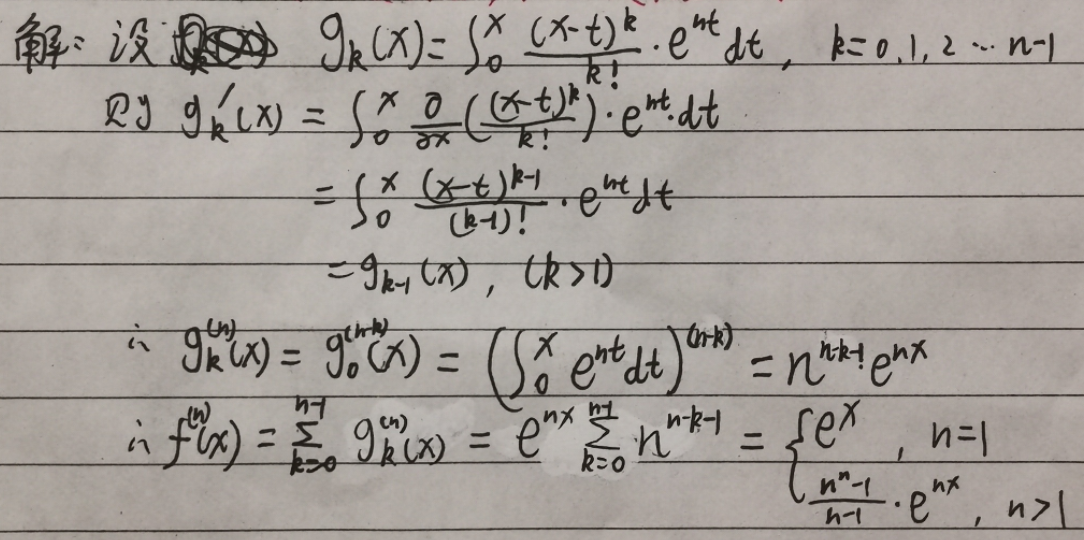 解：设 g_k(x) = ∫_0^x (x-t)^k/k! · e^{nt} dt , k=0,1,2…n-1
则 g_k'(x) = ∫_0^x ∂/∂x((x-t)^k/k!)·e^{nt}·dt
= ∫_0^x (x-t)^{k-1}/(k-1)! · e^{nt} dt
= g_{k-1}(x) , (k>1)
∴ g_k^{(n)}(x) = g_0^{(n-k)}(x) = (∫_0^x e^{nt} dt)^{(n-k)} = n^{n-k-1} e^{nx}
∴ f^{(n)}(x) = ∑_{k=0}^{n-1} g_k^{(n)}(x) = e^{nx} ∑_{k=0}^{n-1} n^{n-k-1} = { e^x , n=1
(n^n-1)/(n-1) · e^{nx} , n>1